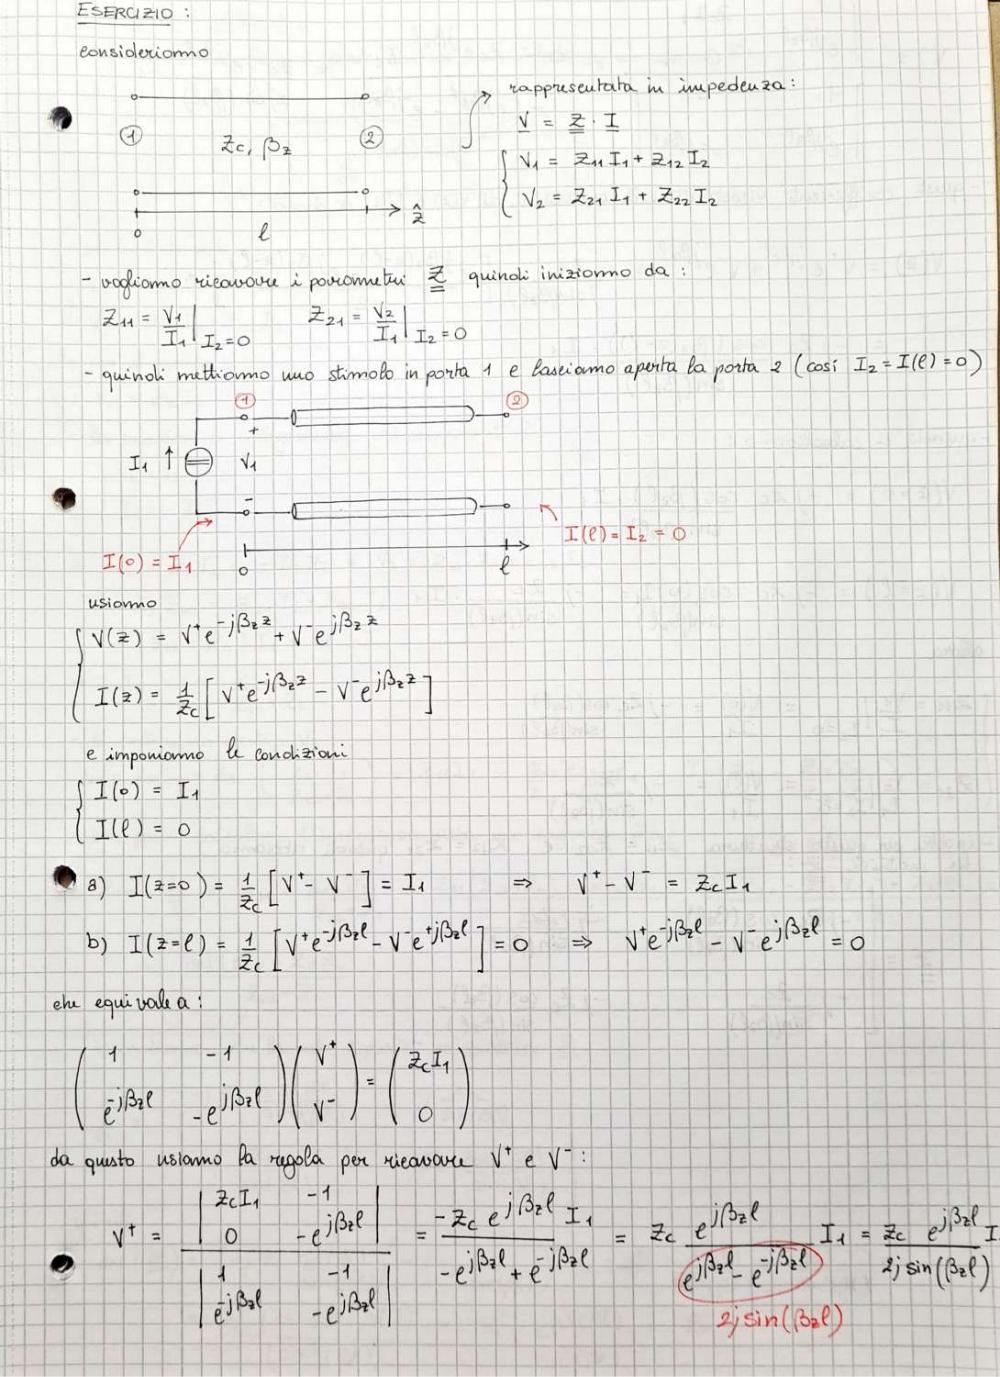 ESERCIZIO :
consideriamo
rappresentata in impedenza:
V = Z · I
① Zc, βz ②
V1 = Z11 I1 + Z12 I2
V2 = Z21 I1 + Z22 I2
ẑ
0 ℓ
- vogliamo ricavare i parametri Z quindi iniziamo da :
Z11 = V1/I1 | I2=0 Z21 = V2/I1 | I2=0
- quindi mettiamo uno stimolo in porta 1 e lasciamo aperta la porta 2 (così I2 = I(ℓ) = 0)
① ②
+
I1 ↑ V1
-
I(ℓ) = I2 = 0
I(0) = I1
0 ℓ
usiamo
V(z) = V⁺e^{-jβz z} + V⁻e^{jβz z}
I(z) = 1/Zc [V⁺e^{-jβz z} - V⁻e^{jβz z}]
e imponiamo le condizioni
I(0) = I1
I(ℓ) = 0
a) I(z=0) = 1/Zc [V⁺ - V⁻] = I1 ⇒ V⁺ - V⁻ = Zc I1
b) I(z=ℓ) = 1/Zc [V⁺e^{-jβzℓ} - V⁻e^{+jβzℓ}] = 0 ⇒ V⁺e^{-jβzℓ} - V⁻e^{jβzℓ} = 0
che equivale a :
( 1 -1 ) ( V⁺ ) = ( Zc I1 )
( e^{-jβzℓ} -e^{jβzℓ} ) ( V⁻ ) ( 0 )
da questo usiamo la regola per ricavare V⁺ e V⁻ :
V⁺ = | Zc I1 -1 ; 0 -e^{jβzℓ} | / | 1 -1 ; e^{-jβzℓ} -e^{jβzℓ} | = -Zc e^{jβzℓ} I1 / (-e^{jβzℓ} + e^{-jβzℓ}) = Zc e^{jβzℓ} / (e^{jβzℓ} - e^{-jβzℓ}) I1 = Zc e^{jβzℓ} / 2j sin(βzℓ) I
2j sin(βzℓ)